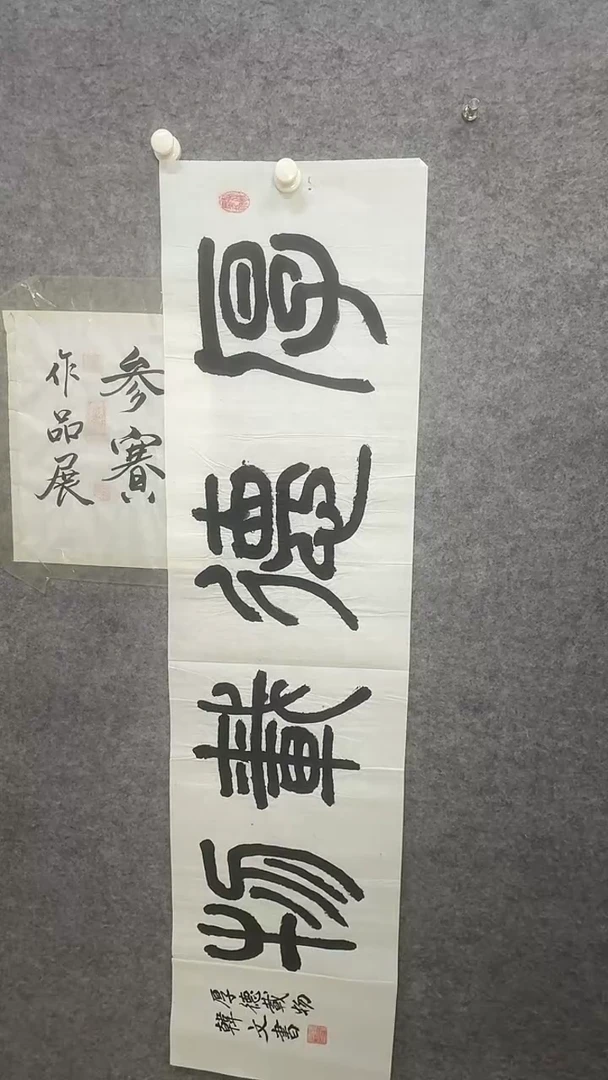 厚德載物
厚德載物
韓文書
参賽
作品展